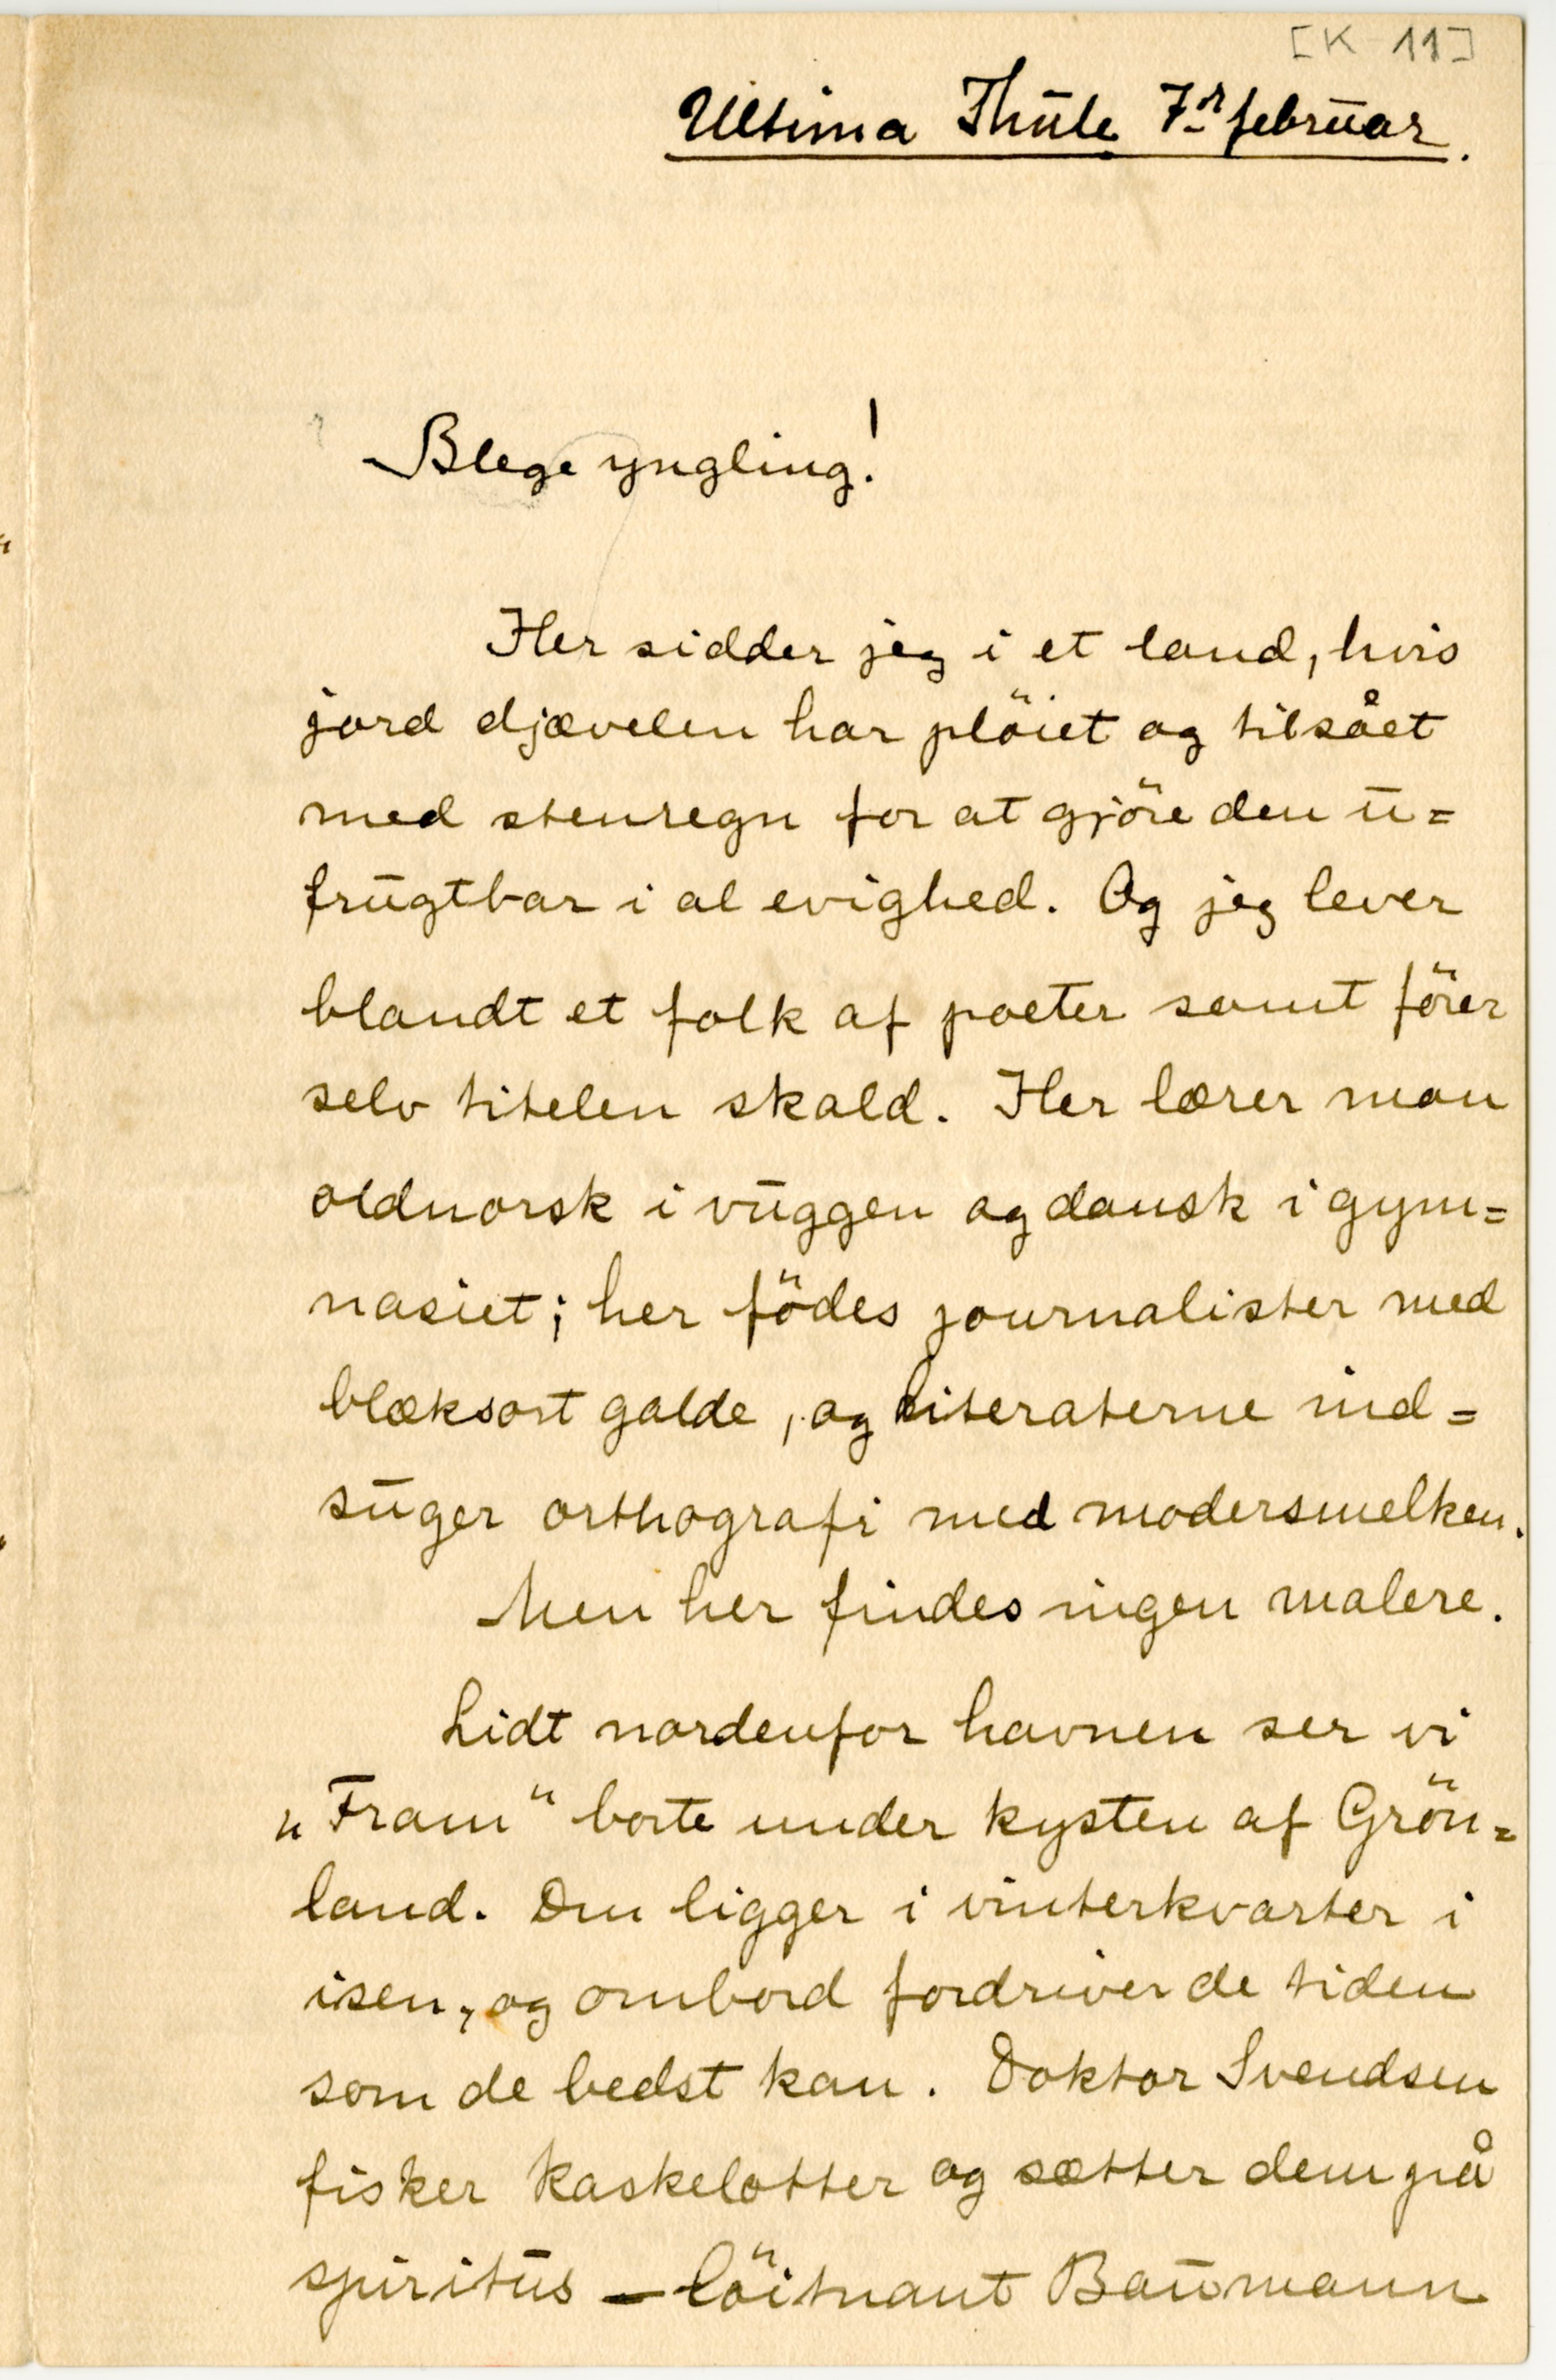 [K 11]
Ultima Thule 7de februar.
Blege yngling!
Her sidder jeg i et land, hvis
jord djævelen har plöiet og tilsået
med stenregn for at gjöre den u=
frugtbar i al evighed. Og jeg lever
blandt et folk af poeter samt förer
selv titelen skald. Her lærer man
oldnorsk i vuggen og dansk i gym=
nasiet; her födes journalister med
blæksort galde, og literaterne ind=
suger orthografi med modersmelken.
Men her findes ingen malere.
Lidt nordenfor havnen ser vi
„Fram" borte under kysten af Grön=
land. Den ligger i vinterkvarter i
isen, og ombord fordriver de tiden
som de bedst kan. Doktor Svendsen
fisker kaskelotter og sætter dem på
spiritus – löitnant Baumann